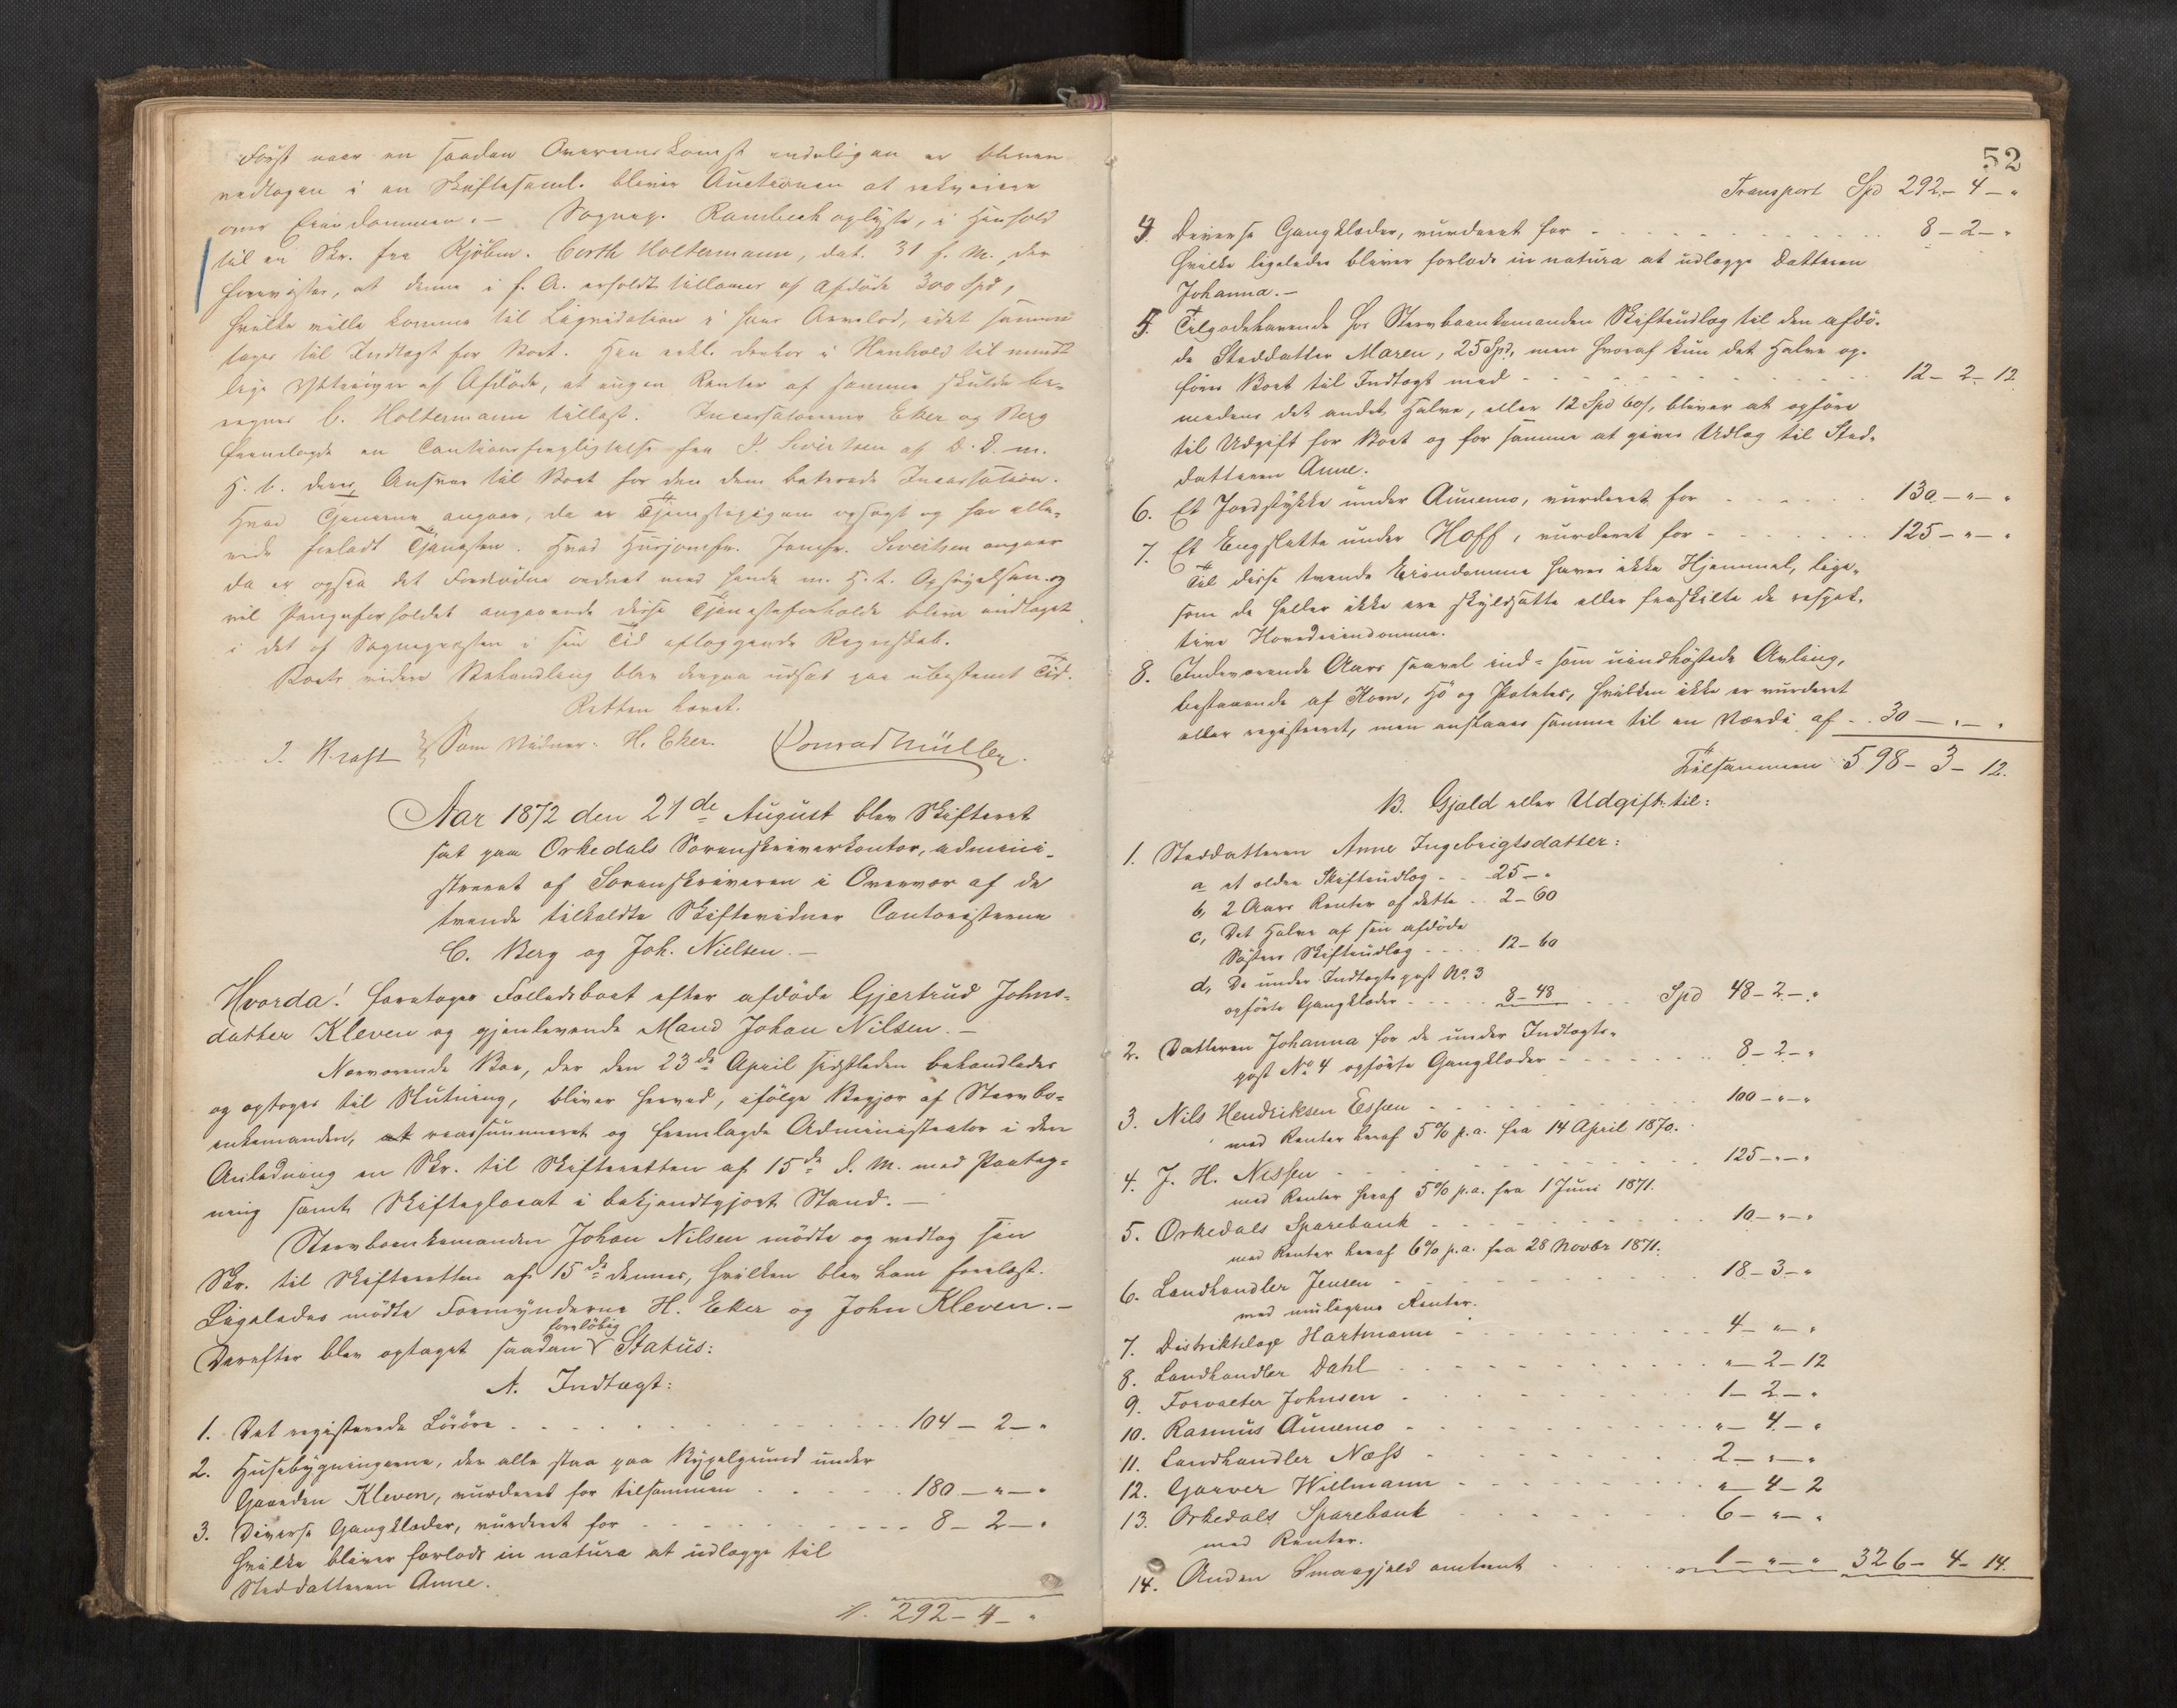 Først naar en saadan Overenskomst endeligen er bleven
vedtagen i en Skiftesaml. bliver Auctionen at rekvirere
over Eiendommen. – Sognep. Rambech oplyste, i Henhold
til en Skr. fra Kjøbm. Corth Holtermann, dat. 31 f. M., der
fremvistes, at denne i f. A. erholdt tillaans af Afdøde 300 Spd,
hvilke ville komme til Liqvidation i hans Arvelod, idet samme
tages til Indtægt for Boet. Han erkl. derhos i Henhold til mundt-
lige Yttringer af Afdøde, at ingen Renter af samme skulde be-
regnes C. Holtermann tillast. Incassatorerne Eker og Berg
fremlagde en Cautionsforpligtelse fra P. Sivertsen af D. D. m.
H. t. deres Ansvar til Boet for den dem betroede Incassation.
Hvad Tjenerne angaar, da er Tjenestepigen opsagt og har alle-
rede forladt Tjenesten. Hvad Husjomfr. Jomfr. Sivertsen angaar
da er ogsaa det Fornødne ordnet med hende m. H. t. Opsigelsen og
vil Pengeforholdet angaaende disse Tjenesteforholde blive indtaget
i det af Sognepresten i sin Tid aflæggende Regnskab.
Boets videre Behandling blev derpaa udsat paa ubestemt Tid.
Retten hævet.
J. Kraft Som Vidner: H. Eker. Conrad Müller.
Aar 1872 den 21de August blev Skifteret
sat paa Orkedals Sorenskriverkontor, admini-
streret af Sorenskriveren i Overvær af de
tvende tilkaldte Skiftevidner Contoristerne
C. Berg og Joh. Nielsen. –
Hvorda! foretoges Fælledsboet efter afdøde Gjertrud Johns-
datter Kleven og gjenlevende Mand Johan Nilsen. –
Nærværende Boe, der den 23de April sidstleden behandledes
og optoges til Slutning, bliver herved, ifølge Begjær af Stervbo-
enkemanden, at reassummeret og fremlagde Administrator i den
Anledning en Skr. til Skifteretten af 15de d. M. med Paateg-
ning samt Skifteplacat i bekjendtgjort Stand. –
Stervboenkemanden Johan Nilsen mødte og vedtog sin
Skr. til Skifteretten af 15de dennes, hvilken blev ham forelæst.
Ligeledes mødte Formynderne H. Eker og John Kleven. –
foreløbig
Derefter blev optaget saadan Status:
A. Indtægt:
1. Det registerede Løsøre 104 – 2 – "
2. Husebygningerne, der alle staa paa Bygselgrund under
Gaarden Kleven, vurderet for tilsammen 180 – " – "
3. Diverse Gangklæder, vurderet for 8 – 2 – "
hvilke bliver forlods in natura at udlægge til
Steddatteren Anne.
292 – 4 – "
52
Transport Spd 292 – 4 – "
4. Diverse Gangklæder, vurderet for 8 – 2 – "
hvilke ligeledes bliver forlods in natura at udlægge Datteren
Johanna. –
5. Tilgodehavende hos Stervboenkemanden Skifteudlæg til den afdø-
de Steddatter Maren, 25 Spd, men hvoraf kun det Halve op-
føres Boet til Indtægt med 12 – 2 – 12
medens det andet Halve, eller 12 Spd 60 s, bliver at opføre
til Udgift for Boet og for samme at gives Udlæg til Sted-
datteren Anne.
6. Et Jordstykke under Aunemo, vurderet for 130 – " – "
7. Et Engslette under Hoff, vurderet for 125 – " – "
Til disse tvende Eiendomme haves ikke Hjemmel, lige-
som de heller ikke ere skyldsatte eller fraskilte de respek-
tive Hovedeiendomme.
8. Indeværende Aars saavel ind- som uindhøstede Avling,
bestaaende af Korn, Hø og Poteter, hvilken ikke er vurderet
eller registreret, men ansaaes samme til en Værdi af 30 – " – "
Tilsammen 598 – 3 – 12.
B. Gjæld eller Udgift til:
1. Steddatteren Anne Ingebrigtsdatter:
a et ældre Skifteudlæg 25 – "
b, 2 Aars Renter af dette 2 – 60
c, Det Halve af sin afdøde
Søsters Skifteudlæg 12 – 60
d, De under Indtægts post No. 3
opførte Gangklæder 8 – 48 Spd 48 – 2 – "
2. Datteren Johanna for de under Indtægts-
post No 4 opførte Gangklæder 8 – 2 – "
3. Nils Hendriksen Eessen 100 – " – "
med Renter heraf 5 % p. a. fra 14 April 1870.
4. J. H. Nissen 125 – " – "
med Renter heraf 5 % p. a. fra 1 Juni 1871.
5. Orkedals Sparebank 10 – " – "
med Renter heraf 6 % p. a. fra 28 Novbr 1871.
6. Landhandler Jensen 18 – 3 – "
med muligens Renter.
7. Distriktslæge Hartmann 4 – " – "
8. Landhandler Dahl " – 2 – 12
9. Forvalter Johnsen 1 – 2 – "
10. Rasmus Aunemo " – 4 – "
11. Landhandler Næss 2 – " – "
12. Garver Willmann " – 4 – 2
13. Orkedals Sparebank 6 – " – "
med Renter.
14. Anden Smaagjeld omtrent 1 – " – " 326 – 4 – 14.